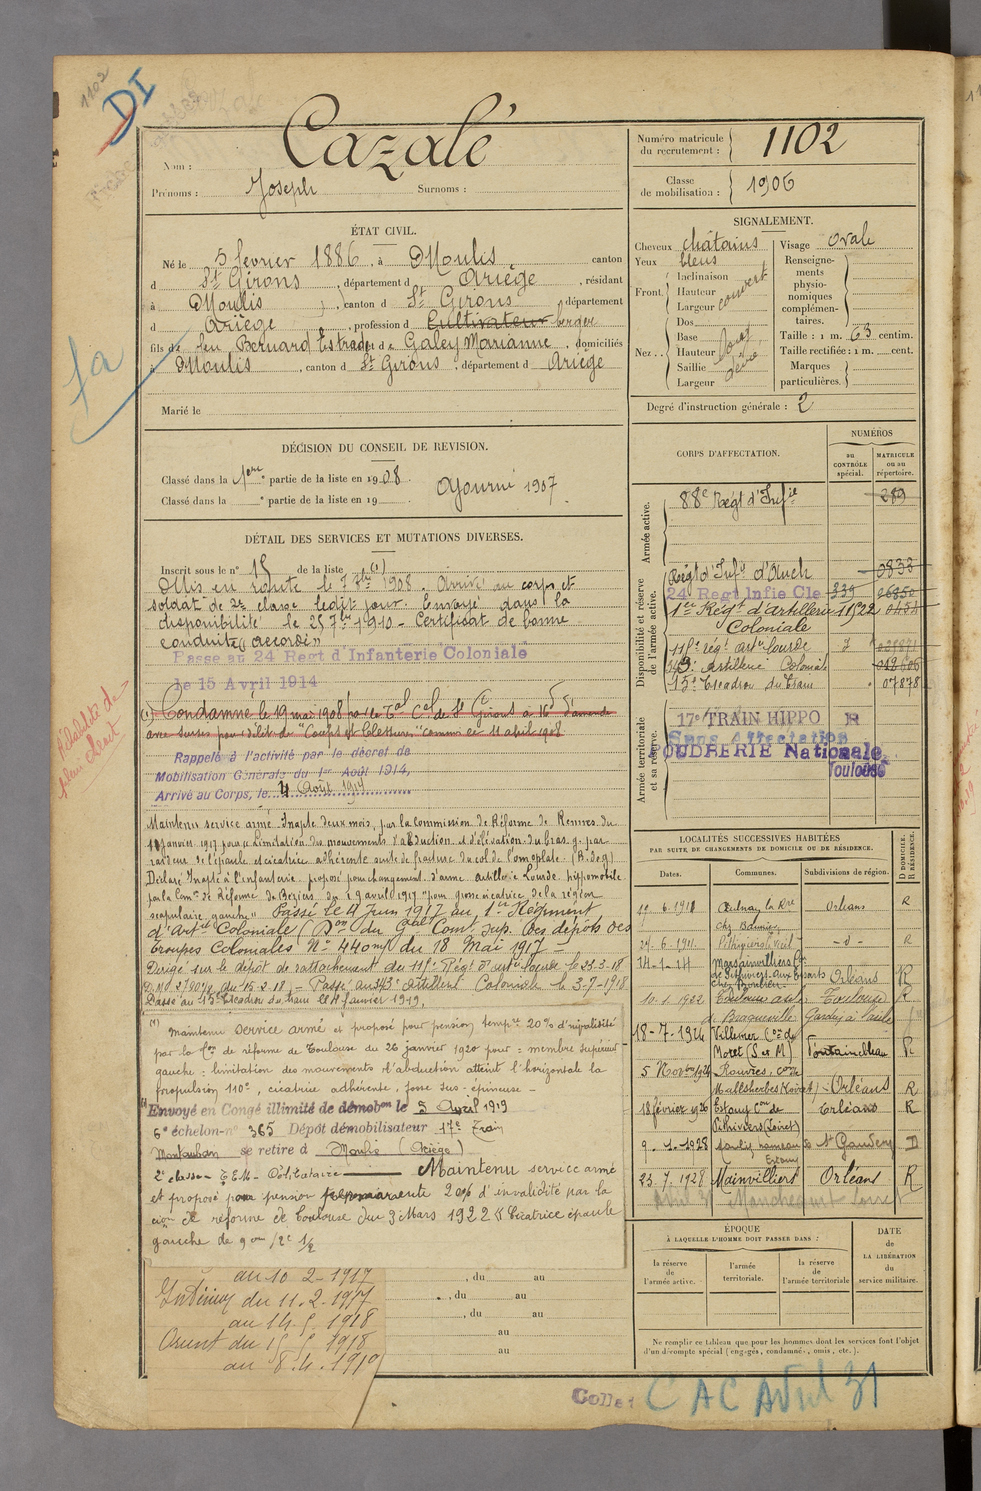 1102
DI
Cazalé
Nom :
Prénoms : Joseph Surnoms :
Numéro matricule du recrutement : 1102
Classe de mobilisation : 1906
ÉTAT CIVIL.
Né le 5 février 1886, à Moulis canton
d St Girons, département d Ariège, résidant
à Moulis, canton d St Girons, département
d Ariège, profession d Cultivateur berger
fils de feu Bernard Estrade et de Galey Marianne, domiciliés
à Moulis, canton d St Girons, département d Ariège
fa
Marié le
SIGNALEMENT.
Cheveux châtains
Yeux bleus
Front. Inclinaison
Hauteur
Largeur
couvert
Nez.. Dos
Base
Hauteur
Saillie
Largeur
long
Visage ovale
Renseignements physionomiques complémentaires.
Taille : 1 m. 63 centim.
Taille rectifiée : 1 m. cent.
Marques particulières.
Degré d'instruction générale : 2
DÉCISION DU CONSEIL DE REVISION.
Classé dans la 1ere partie de la liste en 1908
Classé dans la e partie de la liste en 19
Ajourné 1907
DÉTAIL DES SERVICES ET MUTATIONS DIVERSES.
Inscrit sous le n° 15 de la liste (1)
Mis en route le 7 8bre 1908. Arrivé au corps et
soldat de 2e classe ledit jour. Envoyé dans la
disponibilité le 25 7bre 1910 - Certificat de bonne
conduite "accordé"
Passé au 24 Regt d'Infanterie Coloniale
le 15 Avril 1914
(1) Condamné le 19 mai 1908 par le Tal Cel de St Girons à 16 f d'amende
avec sursis pour délit de "Coups et blessures" commis le 11 avril 1908
Rappelé à l'activité par le décret de
Mobilisation Générale du 1er Août 1914,
Arrivé au Corps, le 4 Août 1914
Maintenu service armé. Inapte deux mois, par la Commission de Réforme de Rennes du
janvier 1917 pour limitation des mouvements d'abduction et d'élévation du bras g. par
raideur de l'épaule et cicatrice adhérente suite de fracture du col de l'omoplate. (B. de g)
Déclaré Inapte à l'infanterie proposé pour changement d'arme artillerie Lourde hippomobile
par la Comon de Réforme de Béziers du 19 avril 1917 "pour grosse cicatrice de la région
scapulaire gauche" Passé le 4 Juin 1917 au 1er Régiment
d'Artrie Coloniale (Don du Gal Com. Sup. Des dépots des
Troupes Coloniales N° 440 du 18 Mai 1917 -
Dirigé sur le dépôt de rattachement du 118e Régt d'artrie lourde le 23-3-18
du 15-2-18 - Passé au 343e artillerie Coloniale le 3-7-1918
Passé au 15e Escadron du train le 14 janvier 1919.
(1) Maintenu service armé et proposé pour pension tempre 20% d'invalidité
par la Con de réforme de Toulouse du 26 janvier 1920 pour : membre supérieur
gauche : limitation des mouvements d'abduction atteint l'horizontale la
propulsion 110°, cicatrice adhérente, fosse sus-épineuse -
Envoyé en Congé illimité de démobon le 5 Avril 1919
6e échelon n° 365 Dépôt démobilisateur 17e Train
Montauban se retire à Moulis (Ariège)
Maintenu service armé
et proposé pour pension permanente 20% d'invalidité par la
con de réforme de Toulouse du 3 Mars 1922 "Cicatrice épaule
gauche de 9cm/2c 1/2
au 10-2-1917
Intérieur du 11-2-1917
au 14-5-1918
Orient du 15-5-1918
au 8-4-1919
, du au
, du au
, du au
au
au
CORPS D'AFFECTATION.
NUMÉROS
au CONTRÔLE spécial.
MATRICULE ou au répertoire.
Armée active.
88e Regt d'Infie 289
Disponibilité et réserve de l'armée active.
Régt d'Infie d'Auch 0838
24 Regt Infie Cle 339
1er Régt d'artillerie 11522
Coloniale
118e régt artrie lourde 7
343e Artillerie Coloniale
15e Escadron du train 07878
Armée territoriale et sa réserve.
17e TRAIN HIPPO R
Sans Affectation
POUDRERIE Nationale
Toulouse
LOCALITÉS SUCCESSIVES HABITÉES
PAR SUITE DE CHANGEMENTS DE DOMICILE OU DE RÉSIDENCE.
Dates. Communes. Subdivisions de région. D DOMICILE. R RÉSIDENCE.
19-6-1911 Aulnay la Rre Orléans R
27-6-1911 Pithiviers le Vieil -d- R
14-1-14 Marsainvilliers Orléans R
10-1-1922 Toulouse Toulouse R
de Braqueville
18-7-1924 Villemer Con de Moret (S et M) Fontainebleau R
5 Novbre 1924 Rouvres, con de Malesherbes (Loiret) Orléans R
18 février 1926 Estouy Con de Pithiviers (Loiret) Orléans R
9-1-1928 Moulis, hameau St Gaudens D
23-7-1928 Mainvilliers Orléans R
Avril 31 Manchecourt Loiret
ÉPOQUE
À LAQUELLE L'HOMME DOIT PASSER DANS :
la réserve de l'armée active.
l'armée territoriale.
la réserve de l'armée territoriale
DATE de LA LIBÉRATION du service militaire.
Ne remplir ce tableau que pour les hommes dont les services font l'objet
d'un décompte spécial (engagés, condamnés, omis, etc.).
CAC Avril 31